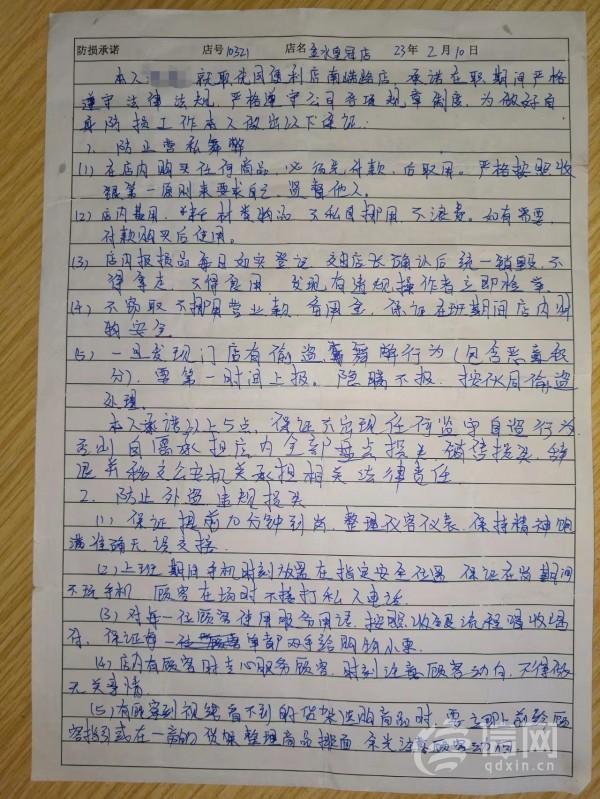 防损承诺 店号 10321 店名 金水皇冠店 23年2月10日
本人 就职友国便利店南端路店，承诺在职期间严格
遵守法律法规，严格遵守公司各项规章制度，为做好自
身防损工作本人做出以下保证：
1、防止营私舞弊
(1) 在店内购买任何商品，必须先付款，后取用。严格按照收
银第一原则来要求自己，监督他人。
(2) 店内易用 材类物品，不私自挪用，不浪费。如有需要，
付款购买后使用。
(3) 店内报损品每日如实登记，由店长确认后统一销毁，不
得拿走，不得食用，发现有违规操作者立即检举。
(4) 不窃取不挪用营业款，备用金，保证在班期间店内财
物安全。
(5) 一旦发现门店有偷盗、舞弊行为(包含恶意积
分)，需第一时间上报。隐瞒不报，按伙同偷盗
处理。
本人承诺以上5点，保证不出现任何监守自盗行为，
否则自愿承担店内全部盘点损失、销售损失，辞
退并移交公安机关承担相关法律责任。
2、防止外盗违规损失
(1) 保证提前10分钟到岗，整理仪容仪表，保持精神饱
满准确无误交接。
(2) 上班期间手机时刻放置在指定安全位置，保证在岗期间
不玩手机，顾客在场时不接打私人电话。
(3) 对每一位顾客使用服务用语，按照收银流程唱收唱
付，保证每一位顾客单部两手给购物小票。
(4) 店内有顾客时专心服务顾客，时刻注意顾客动向，不得做
无关事情。
(5) 有顾客到视线看不到的货架选购商品时，要立即上前给顾
客指引或在一旁的货架整理商品排面，余光注意顾客动向。
信网
qdxin.cn